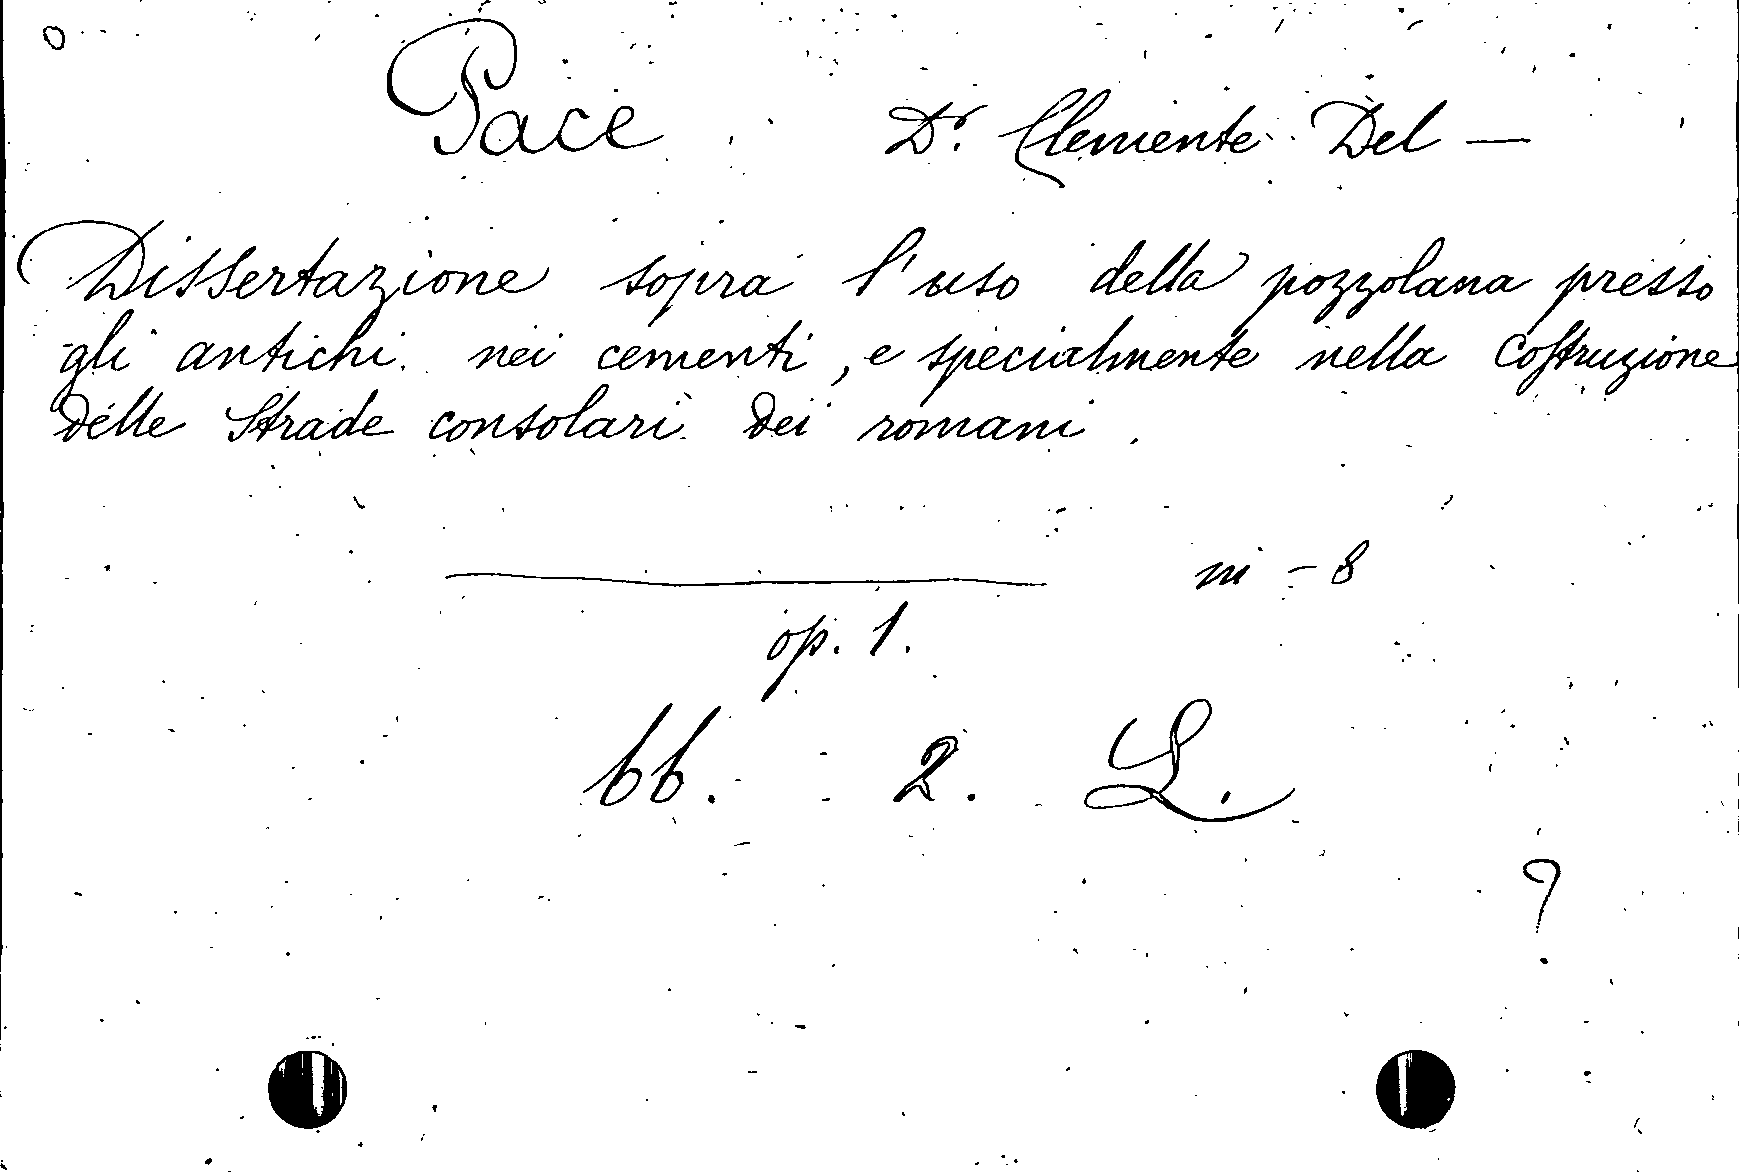 Pace Dr. Clemente Del —
Dissertazione sopra l'uso della pozzolana presso
gli antichi nei cementi, e specialmente nella costruzione
delle Strade consolari dei romani.
in - 8
op. 1.
66. 2. L.
?